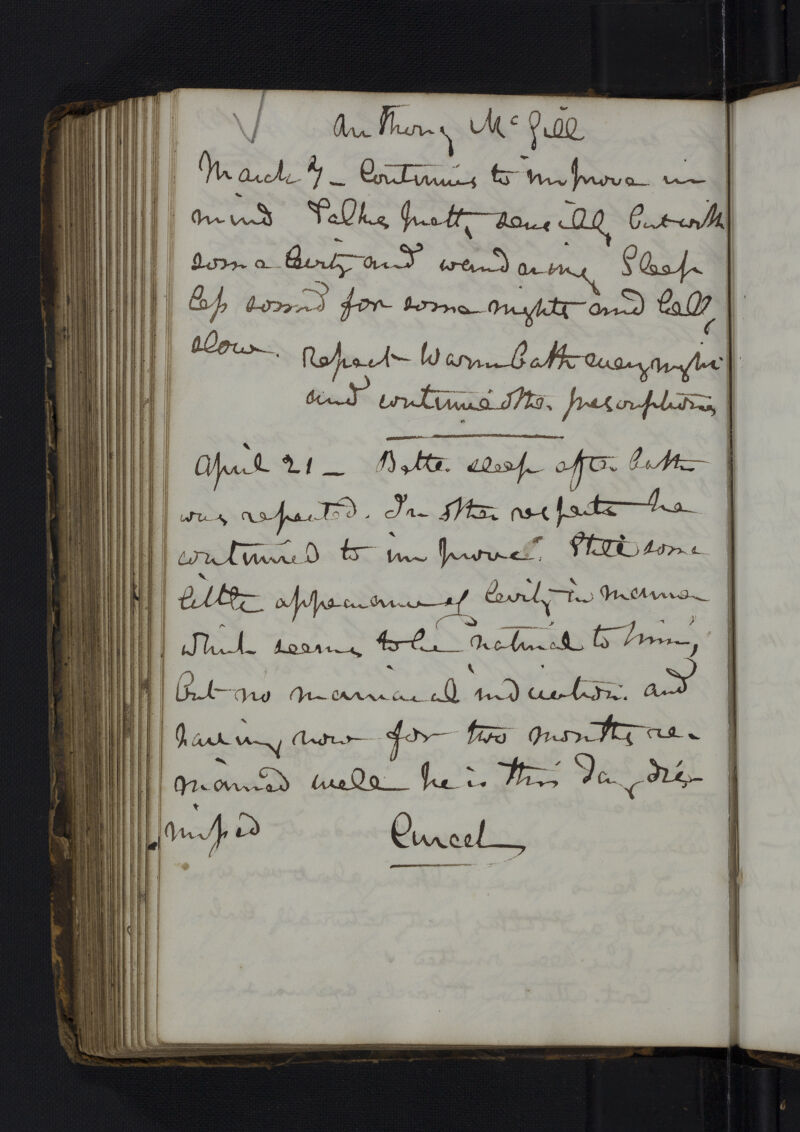 Anthony McGill
March 7 - Continues to improve in
mind Talks pretty sensibly but with
some levity and wandering Sleep
less sound for some nights and belly
slow. Repeat Warm bath every night
and continue other prescriptions
April 21 - Better sleep after bath
was repeated. In other respects he
continued to improve. Still some
little appearance of levity in manner
which seems to be natural to him,
but no maniacal indication. and
having now for two months re-
mained well he is this day dis-
missed Cured